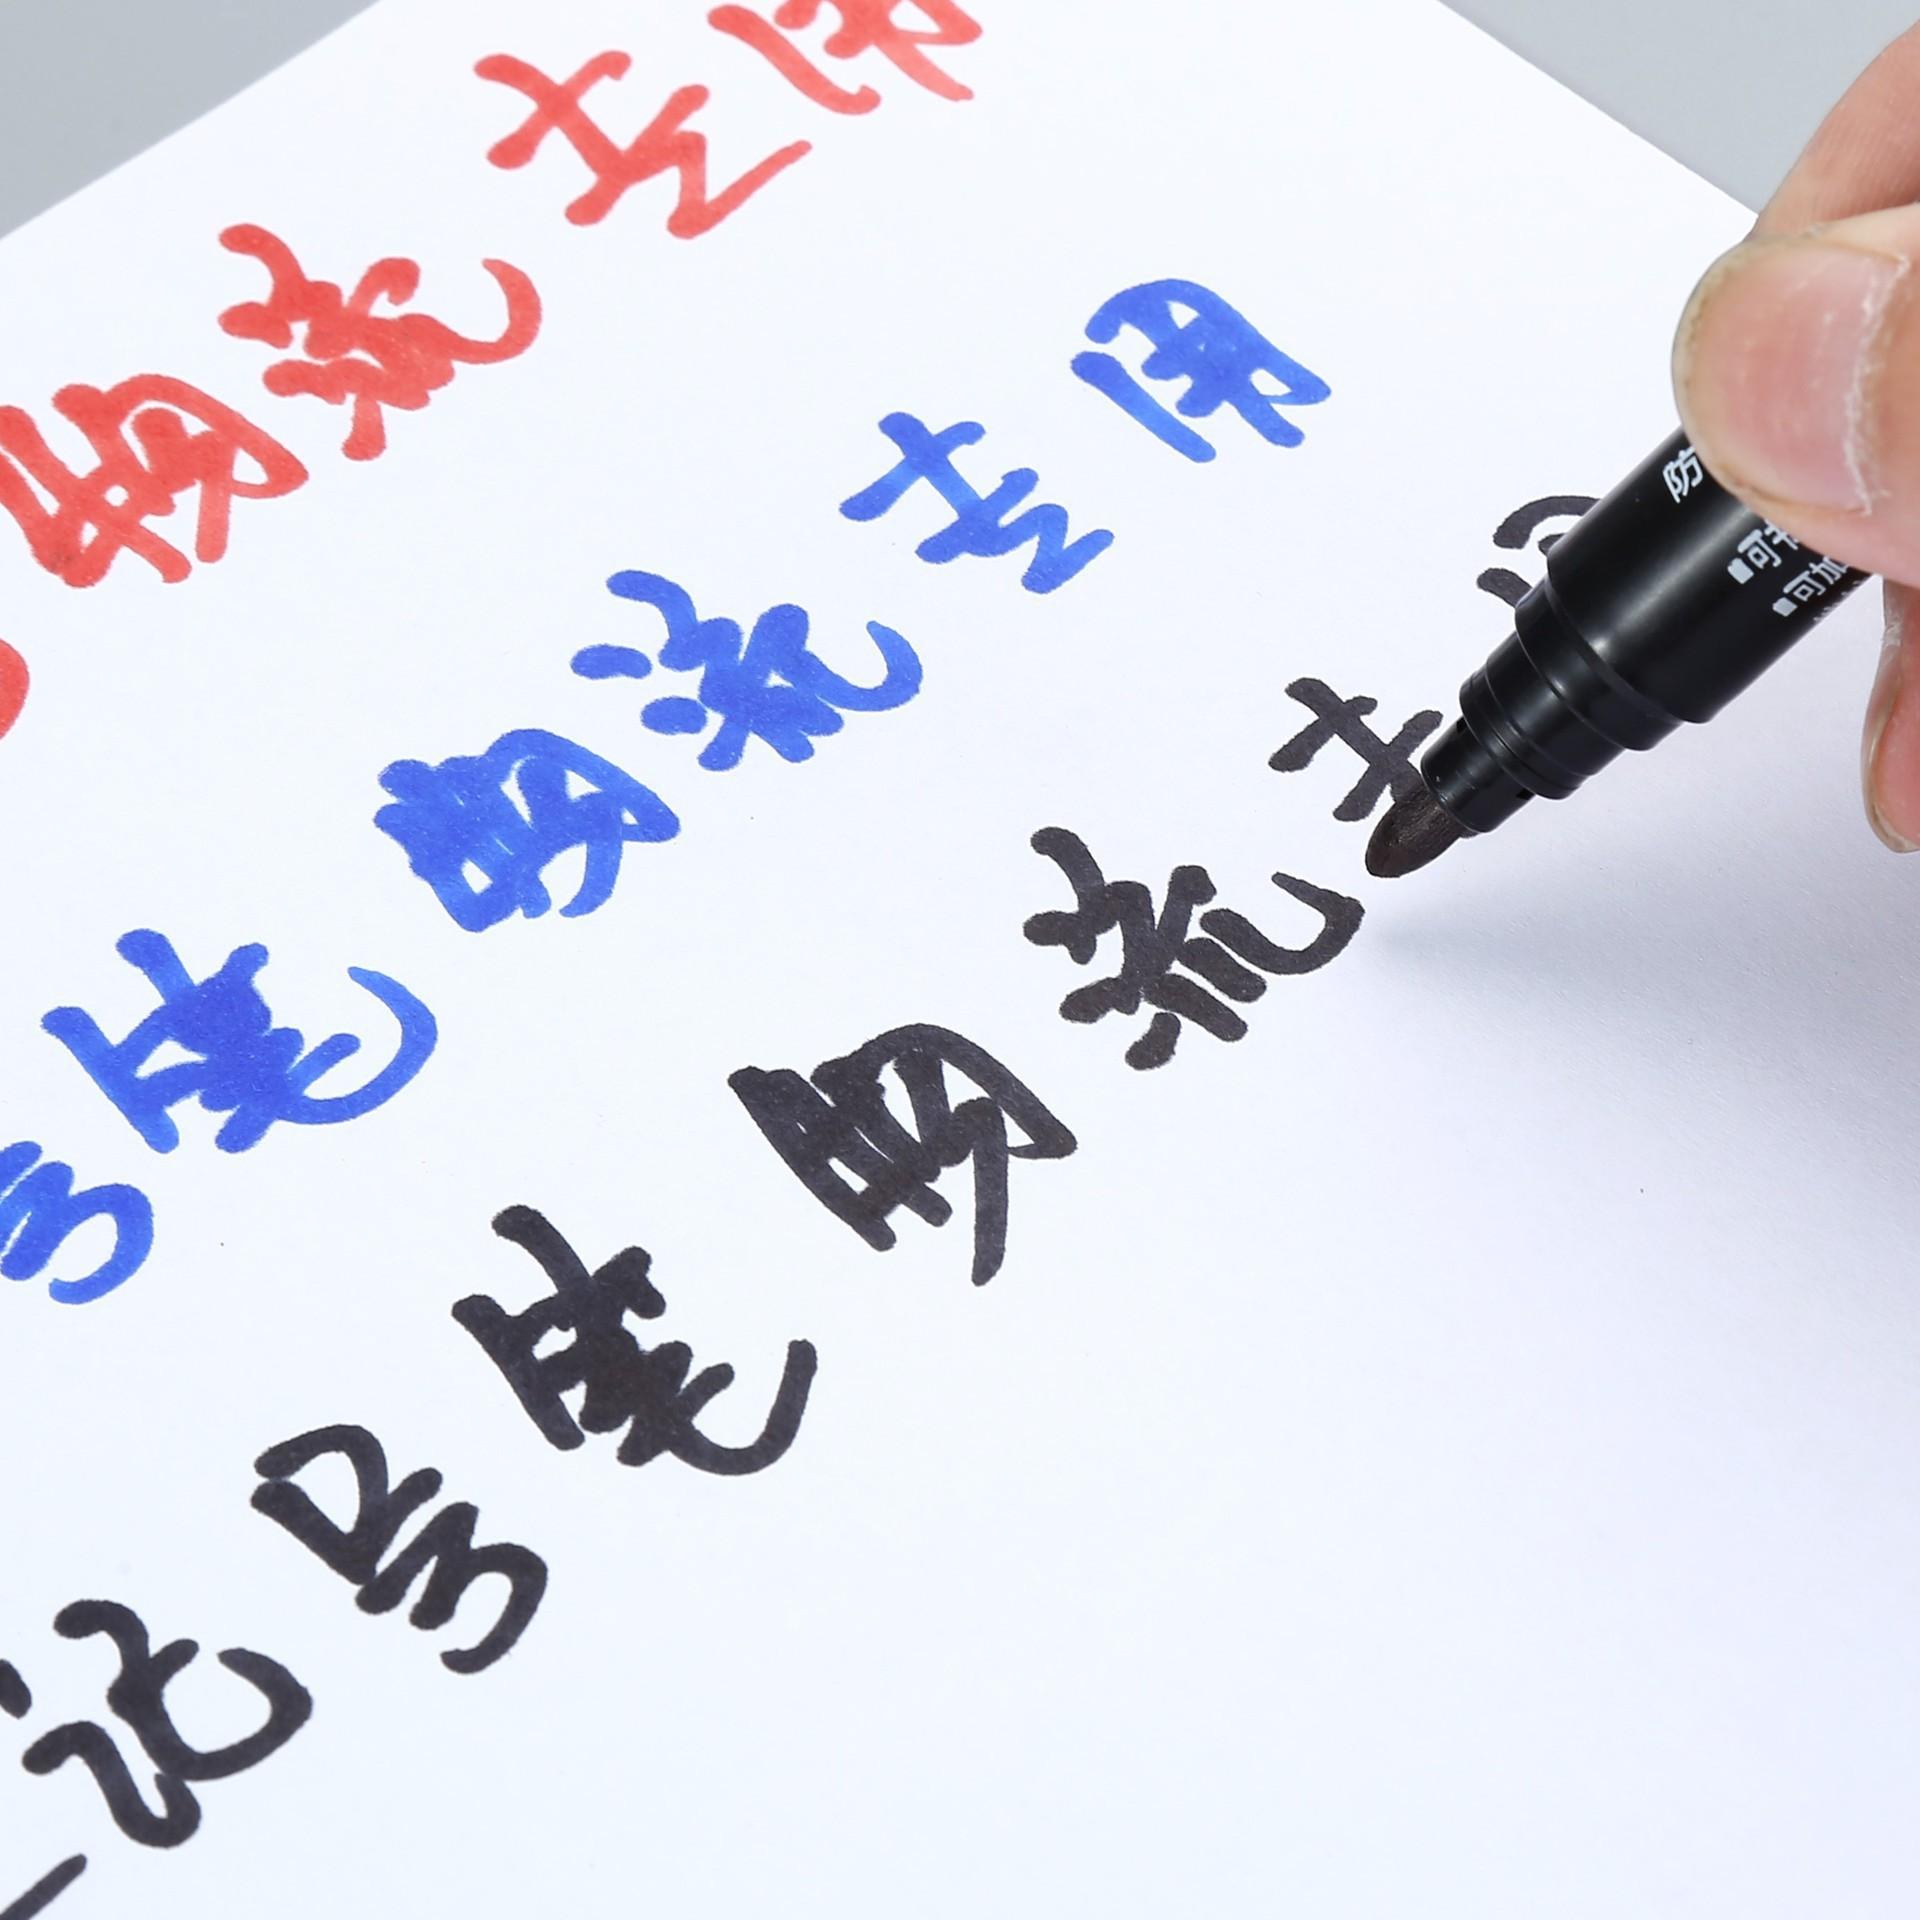 物流专用
号笔物流专用
记号笔物流专
防
可书
可加